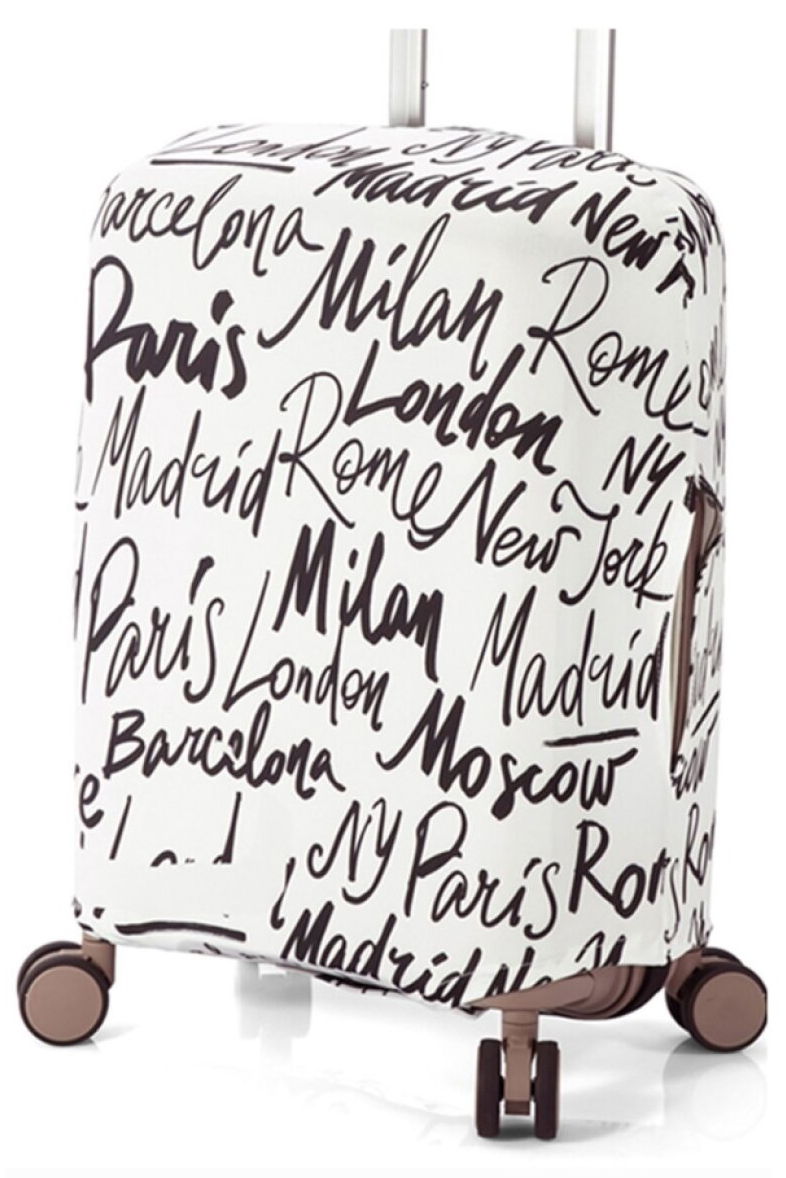 London NY Paris
Madrid New
Barcelona
Milan Rome
Paris
London
NY
Madrid Rome New York
Milan
Paris London Madrid
Barcelona Moscow
NY Paris Rom
Madrid